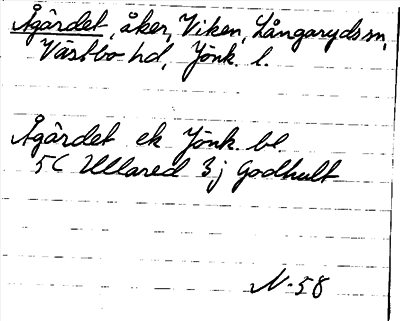 Ågärdet, åker, Viken, Långaryds sn,
Västbo hd, Jönk. l.
Ågärdet ek Jönk. bl
5C Ullared 3j Godhult
N-58